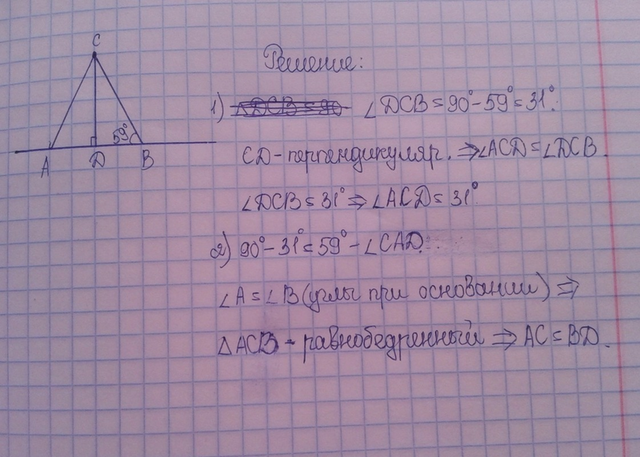 C
59°
A D B
Решение:
1) ∠DCB = 90°-59°=31°.
CD-перпендикуляр. ⇒∠ACD=∠DCB.
∠DCB=31°⇒∠ACD=31°
2) 90°-31°=59°-∠CAD.
∠A=∠B(углы при основании)⇒
△ACB-равнобедренный⇒AC=BD.